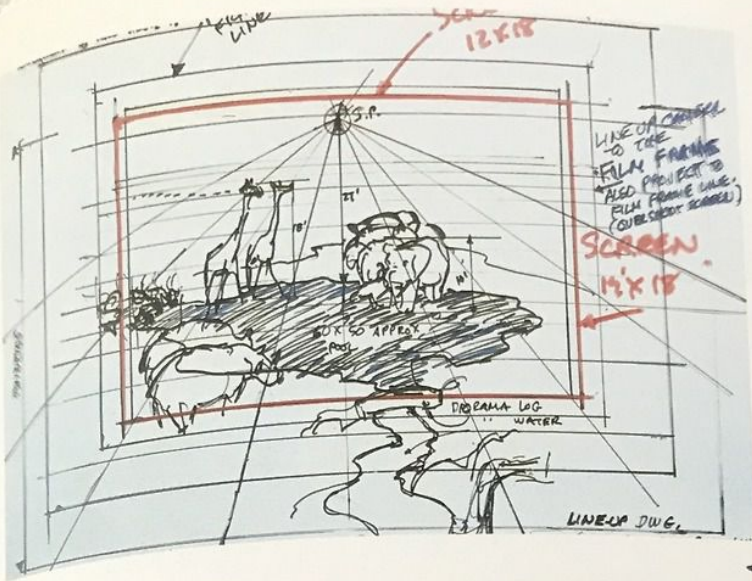 LINE
12 X 18
S.P.
LINE UP CAMERA
TO THE
FILM FRAME
ALSO PROJECT TO
FILM FRAME LINE.
(OVERSHOOT SCREEN)
27'
18'
SCREEN
14' X 18'
60 X 50 APPROX
POOL
DIORAMA LOG
" WATER
LINE-UP DWG.